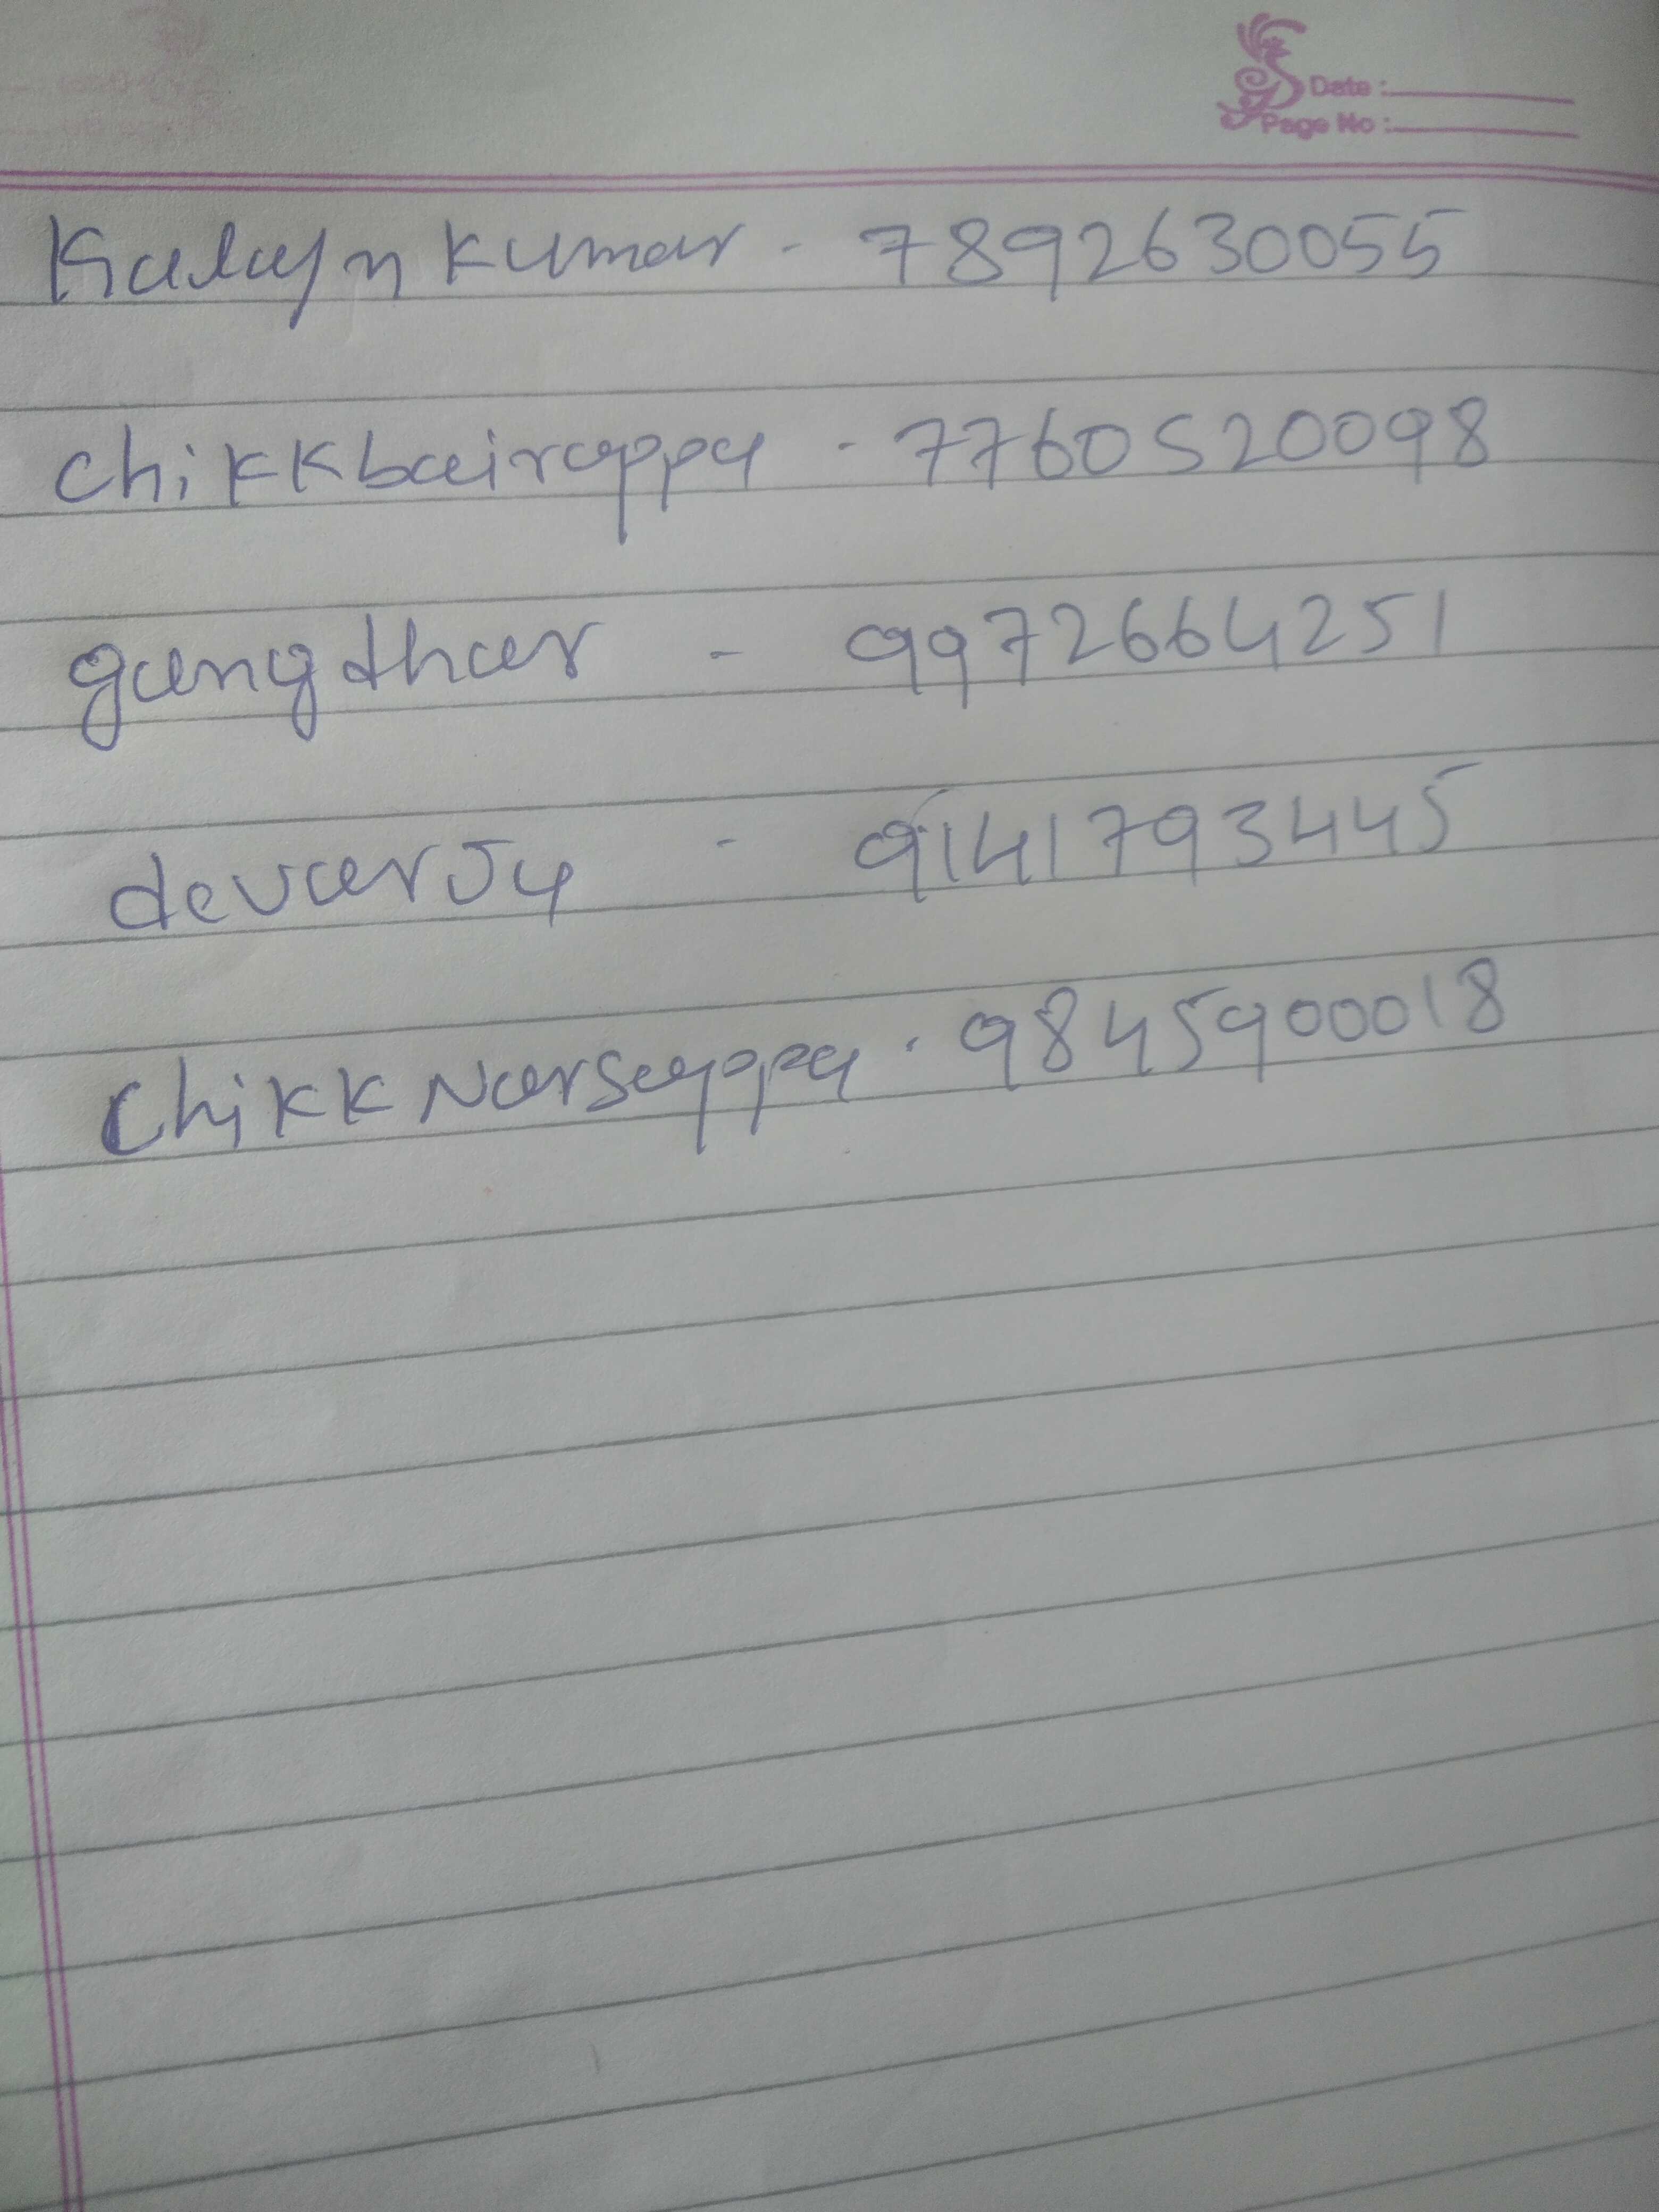 Date :
Page No :
Kalayn Kumar - 7892630055
chikkbairappa - 7760520098
gangdhar - 9972664251
devarju - 9141793445
ChikkNarsayppa - 9845900018